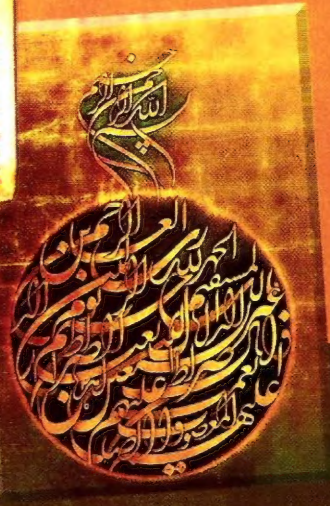 بسم الله الرحمن الرحيم
الحمد لله رب العلمين
الرحمن الرحيم
يوم الدين
نعبد
نستعين
الصراط المستقيم
صراط الذين
انعمت عليهم
غير المغضوب عليهم ولا الضالين